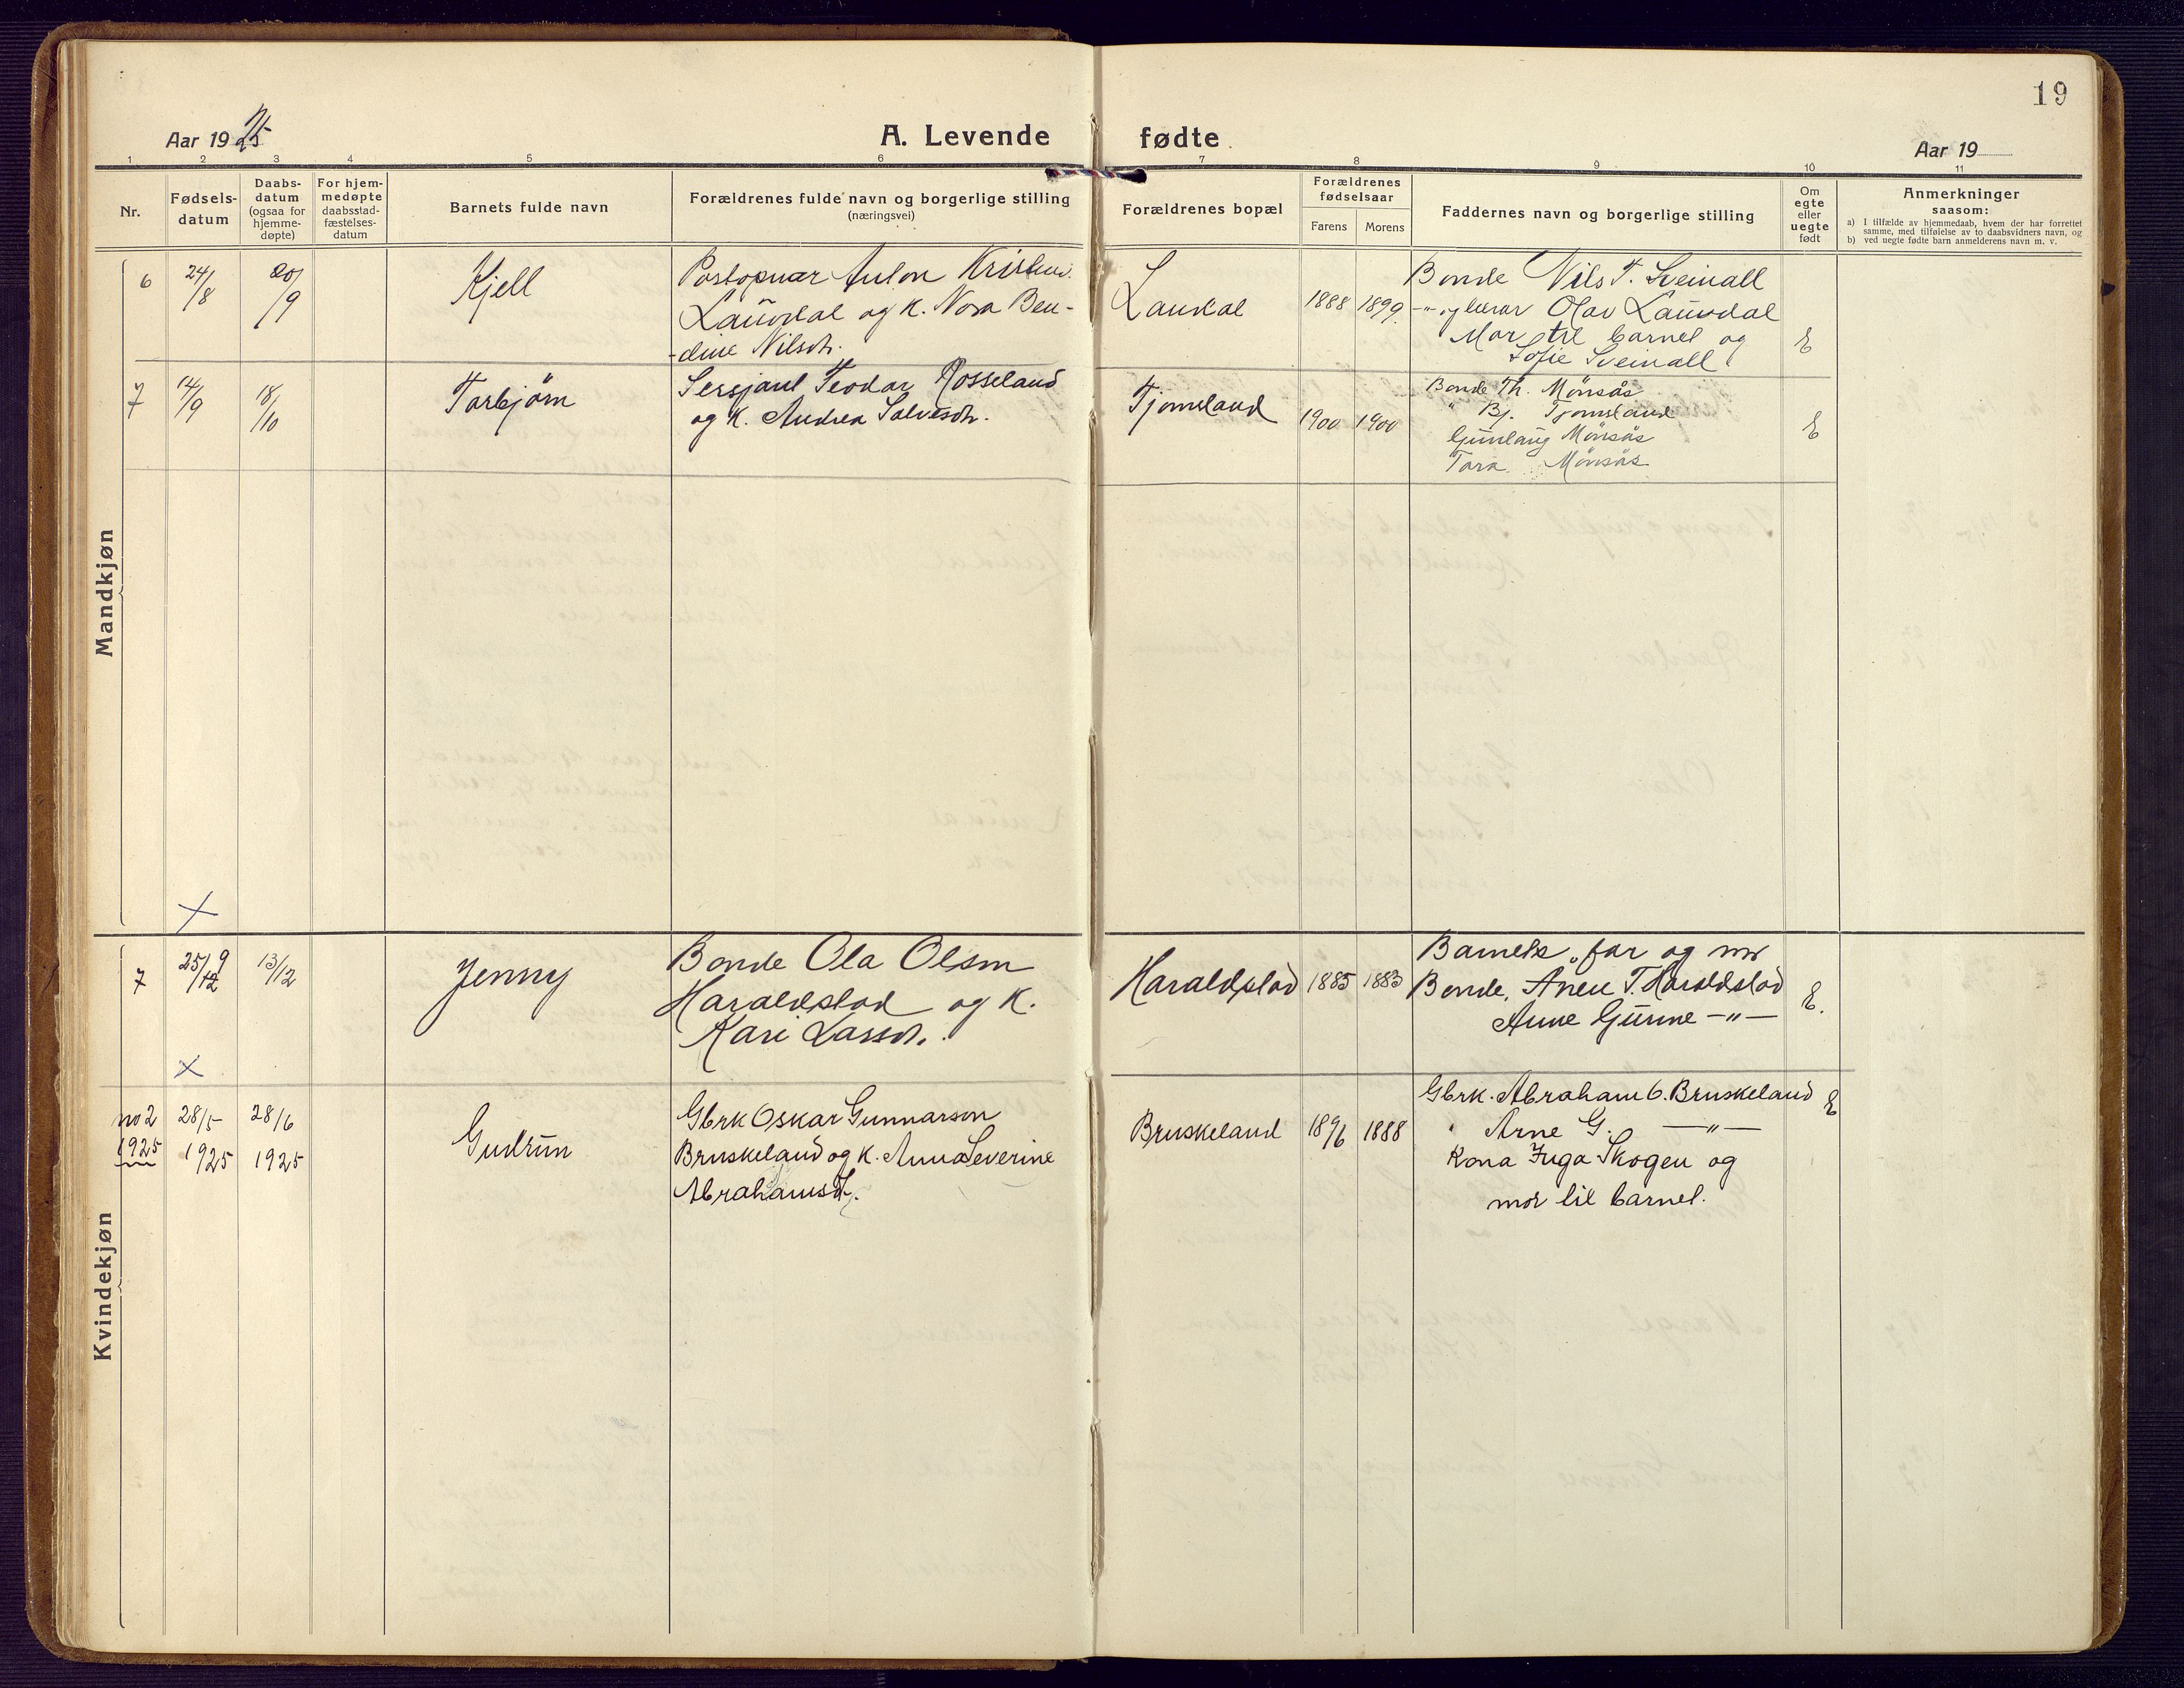 19
Aar 1925
A. Levende fødte
Aar 19
1 2 3 4 5 6 7 8 9 10 11
Nr.
Fødsels-
datum
Daabs-
datum
(ogsaa for
hjemme-
døpte)
For hjem-
medøpte
daabsstad-
fæstelses-
datum
Barnets fulde navn
Forældrenes fulde navn og borgerlige stilling
(næringsvei)
Forældrenes bopæl
Forældrenes
fødselsaar
Farens Morens
Faddernes navn og borgerlige stilling
Om
egte
eller
uegte
født
Anmerkninger
saasom:
a) I tilfælde av hjemmedaab, hvem der har forrettet
samme, med tilføielse av to daabsvidners navn, og
b) ved uegte fødte barn anmelderens navn m. v.
Mandkjøn
6
24/8
20/9
Kjell
Postopnar Anton Kristens.
Laudal og k. Nora Ben-
-dine Nilsdt.
Laudal
1888 1899
Bonde Nils T. Sveinall
-"- og lærar Olav Lauvdal
Mor til barnet og
Sofie Sveinall
E
7
14/9
18/10
Torbjörn
Sersjant Teodor Rosseland
og k. Andrea Salvesdt.
Tjomsland
1900 1900
Bonde Th. Mönsås
" Bj. Tjomsland
Gunlaug Mönsås
Tora Mönsås
E
Kvindekjøn
7
25/9
13/12
Jenny
Bonde Ola Olson
Haraldstad og k.
Kari Larsdt.
Haraldstad
1885 1883
Barnets far og mor
Bonde, Anen T. Haraldstad
Anne Gurine -"-
E.
no 2
1925
28/5
1925
28/6
1925
Gudrun
Gbrk Oskar Gunnarson
Bruskeland og k. Anna Severine
Abrahamsdt.
Bruskeland
1896 1888
Gbrk. Abraham O. Bruskeland
" Arne G. -"-
Kona Inga Skogen og
mor til barnet.
E